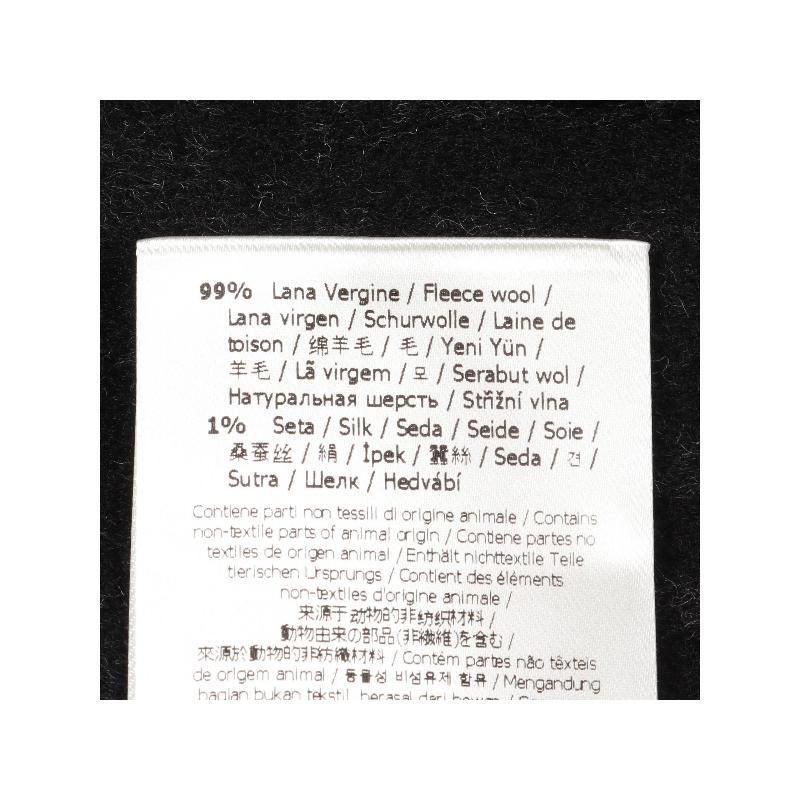 99% Lana Vergine / Fleece wool /
Lana virgen / Schurwolle / Laine de
toison / 绵羊毛 / 毛 / Yeni Yün /
羊毛 / Lã virgem / 모 / Serabut wol /
Натуральная шерсть / Střižní vlna
1% Seta / Silk / Seda / Seide / Soie /
桑蚕丝 / 絹 / İpek / 蠶絲 / Seda / 견 /
Sutra / Шелк / Hedvábí
Contiene parti non tessili di origine animale / Contains
non-textile parts of animal origin / Contiene partes no
textiles de origen animal / Enthält nichttextile Teile
tierischen Ursprungs / Contient des éléments
non-textiles d'origine animale /
来源于动物的非纺织材料 /
動物由来の部品(非繊維)を含む /
來源於動物的非紡織材料 / Contém partes não têxteis
de origem animal / 동물성 비섬유제 함유 / Mengandung
bagian bukan tekstil, berasal dari hewan /